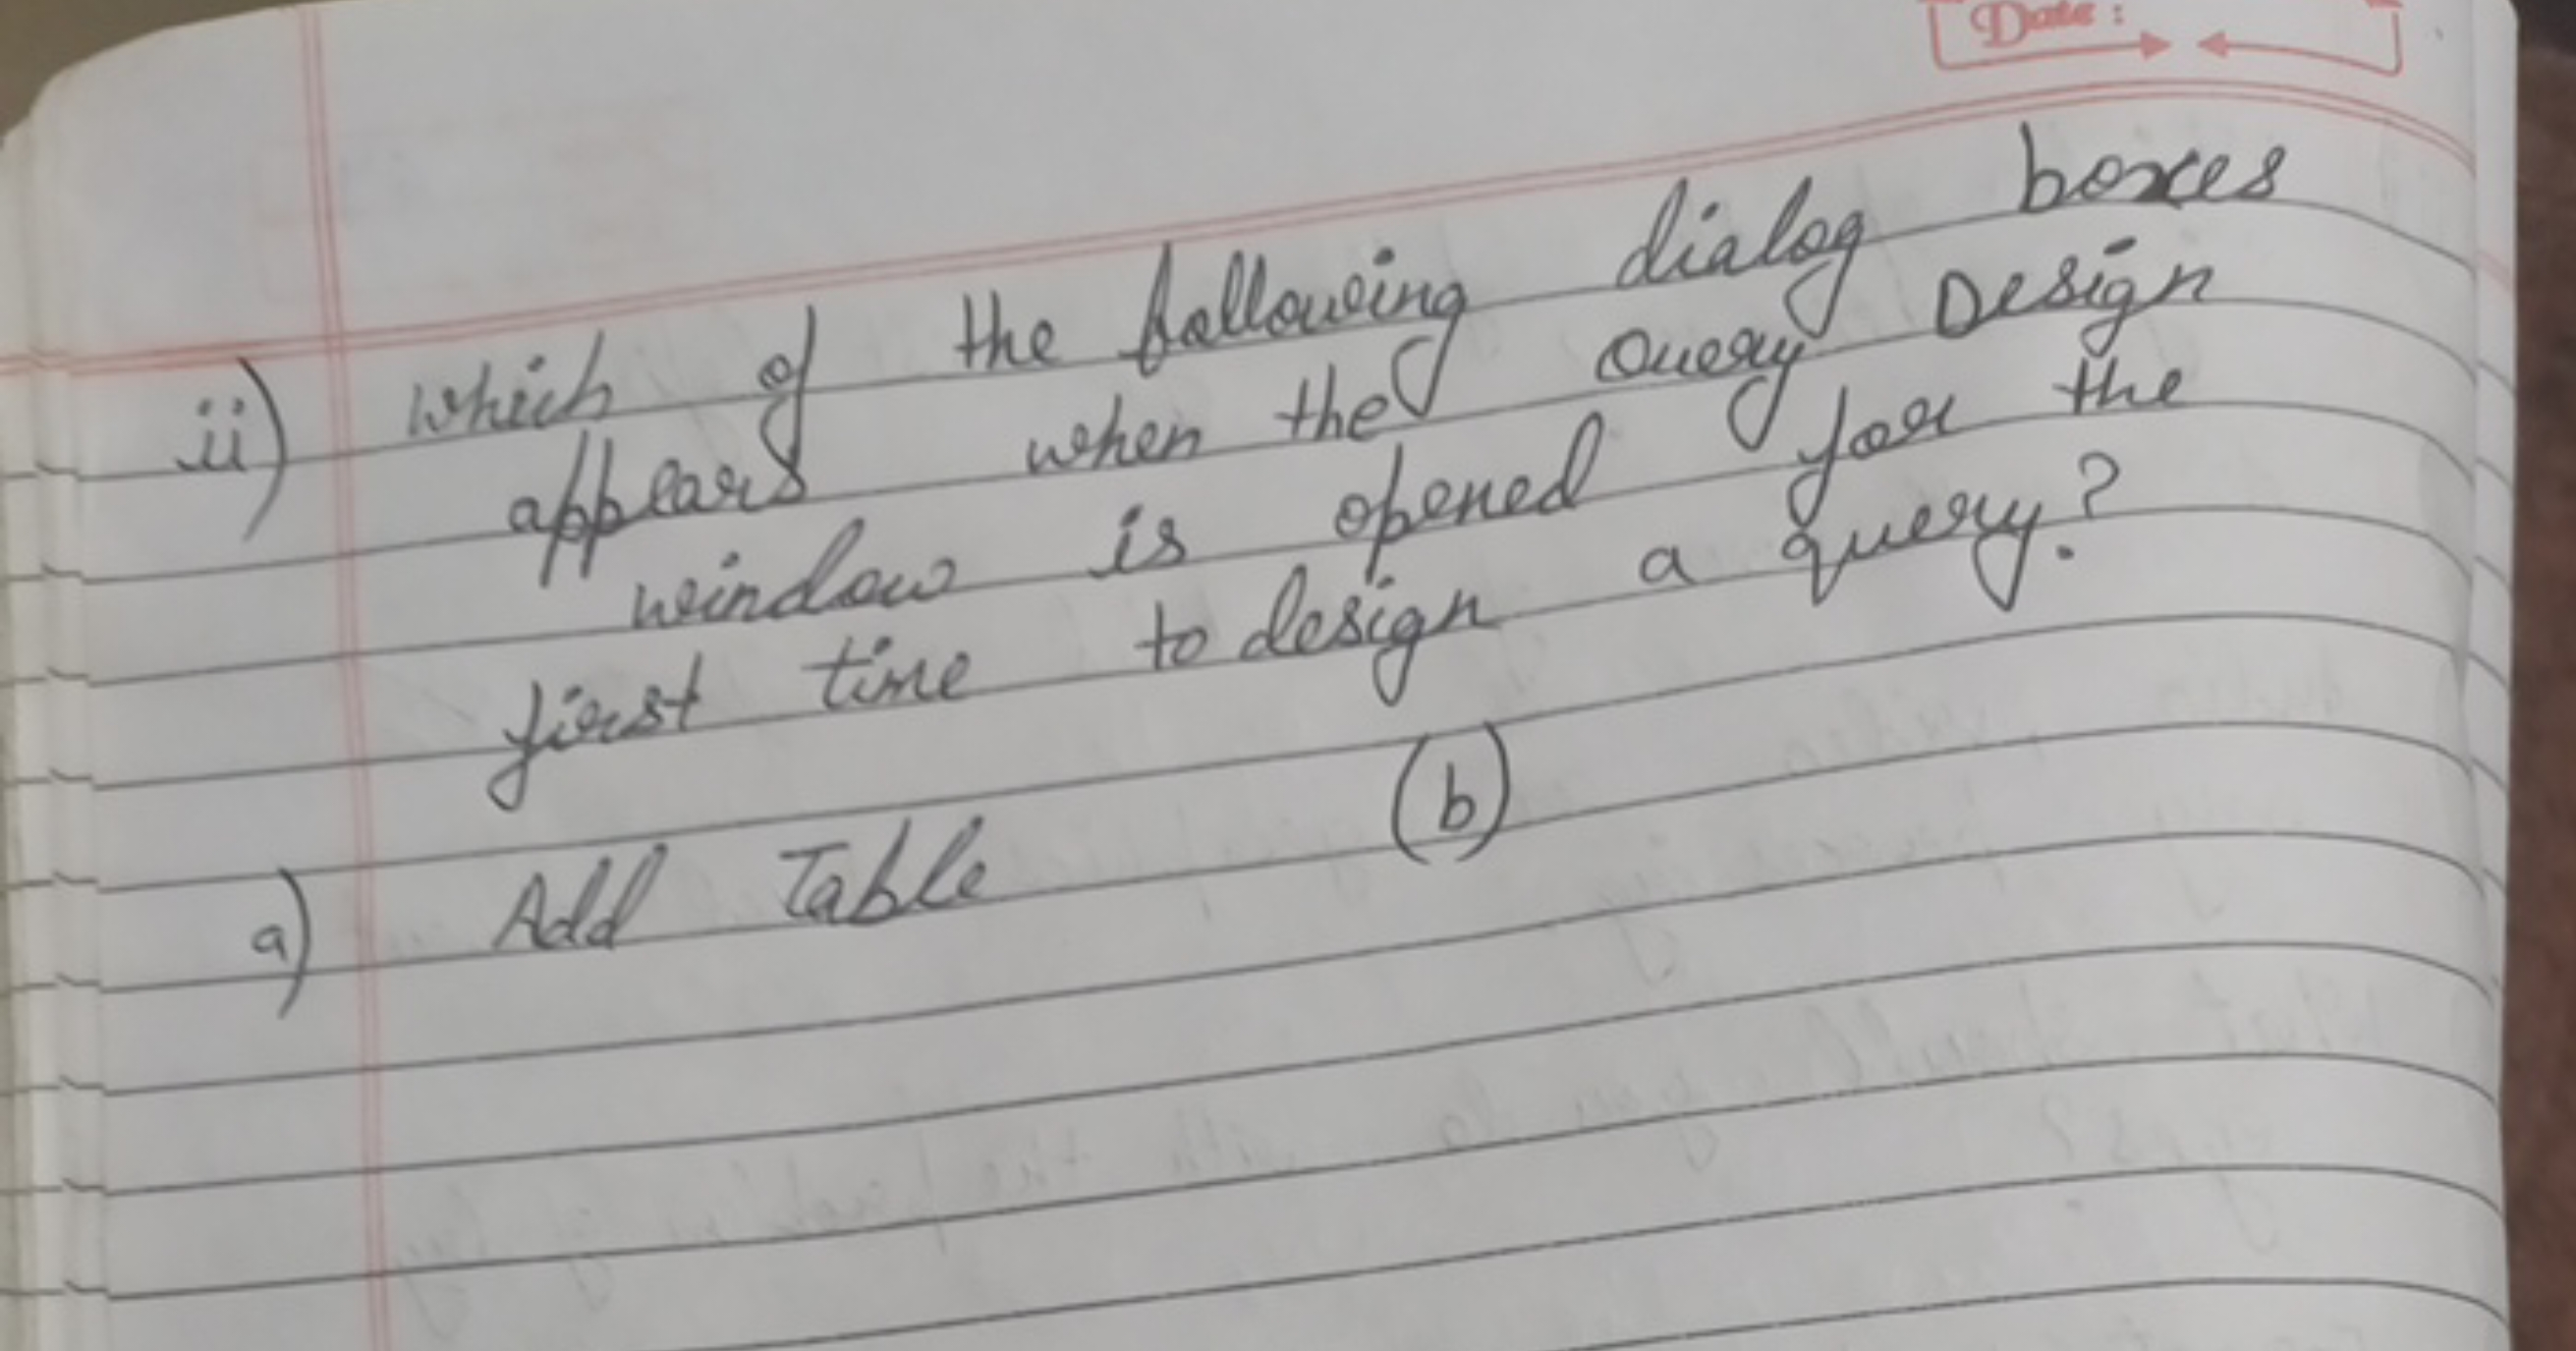 Date :
ii) which of the following dialog boxes
appears when the Query Design
window is opened for the
first time to design a query?
a) Add Table (b)